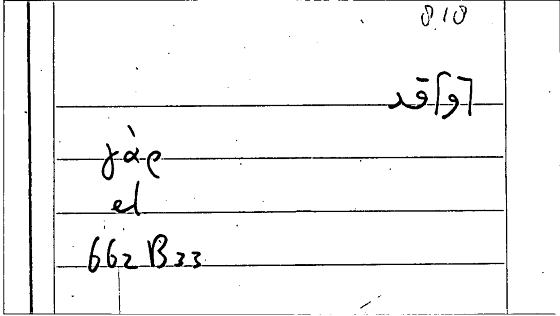 818
[و]قد
γὰρ
el
662 B33